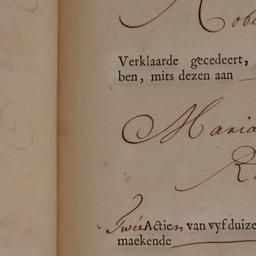 Verklaarde gecedeert,
ben, mits dezen aan
Maria
Twée Actien van vyf duize
maekende